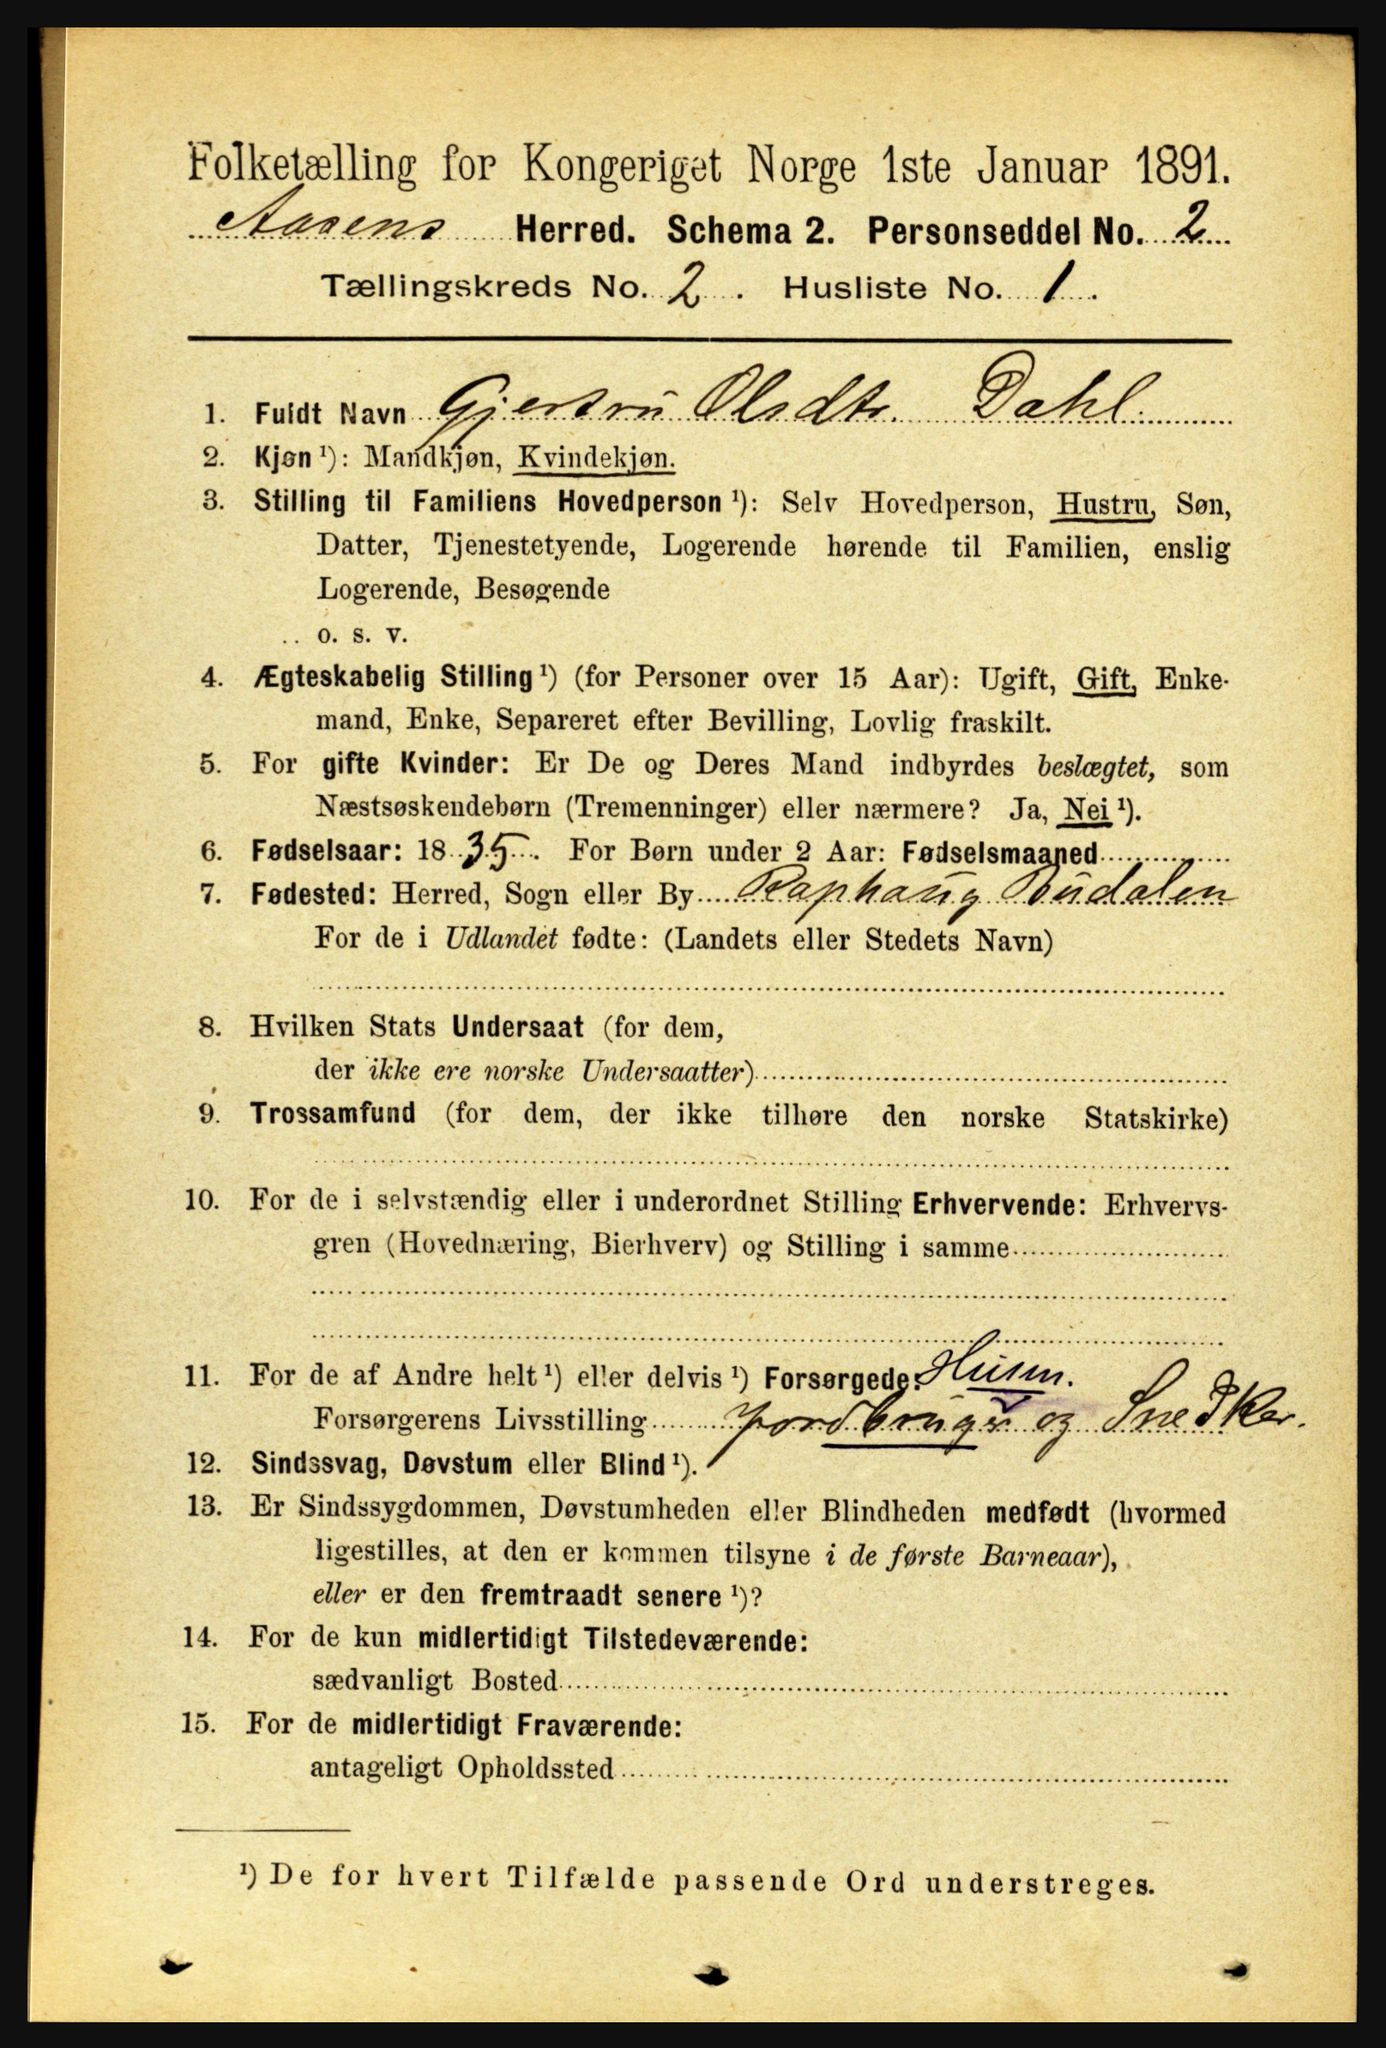 Folketælling for Kongeriget Norge 1ste Januar 1891.
Aasens Herred. Schema 2. Personseddel No. 2
Tællingskreds No. 2. Husliste No. 1.
1. Fuldt Navn Gjertru Olsdtr. Dahl.
2. Kjøn ¹): Mandkjøn, Kvindekjøn.
3. Stilling til Familiens Hovedperson ¹): Selv Hovedperson, Hustru, Søn,
Datter, Tjenestetyende, Logerende hørende til Familien, enslig
Logerende, Besøgende
.. o. s. v.
4. Ægteskabelig Stilling ¹) (for Personer over 15 Aar): Ugift, Gift, Enke-
mand, Enke, Separeret efter Bevilling, Lovlig fraskilt.
5. For gifte Kvinder: Er De og Deres Mand indbyrdes beslægtet, som
Næstsøskendebørn (Tremenninger) eller nærmere? Ja, Nei ¹).
6. Fødselsaar: 1835. For Børn under 2 Aar: Fødselsmaaned
7. Fødested: Herred, Sogn eller By Raphaug Budalen
For de i Udlandet fødte: (Landets eller Stedets Navn)
8. Hvilken Stats Undersaat (for dem,
der ikke ere norske Undersaatter)
9. Trossamfund (for dem, der ikke tilhøre den norske Statskirke)
10. For de i selvstændig eller i underordnet Stilling Erhvervende: Erhvervs-
gren (Hovednæring, Bierhverv) og Stilling i samme
11. For de af Andre helt ¹) eller delvis ¹) Forsørgede: Husm.
Forsørgerens Livsstilling jordbruger og Snedker.
12. Sindssvag, Døvstum eller Blind ¹).
13. Er Sindssygdommen, Døvstumheden eller Blindheden medfødt (hvormed
ligestilles, at den er kommen tilsyne i de første Barneaar),
eller er den fremtraadt senere ¹)?
14. For de kun midlertidigt Tilstedeværende:
sædvanligt Bosted
15. For de midlertidigt Fraværende:
antageligt Opholdssted
¹) De for hvert Tilfælde passende Ord understreges.